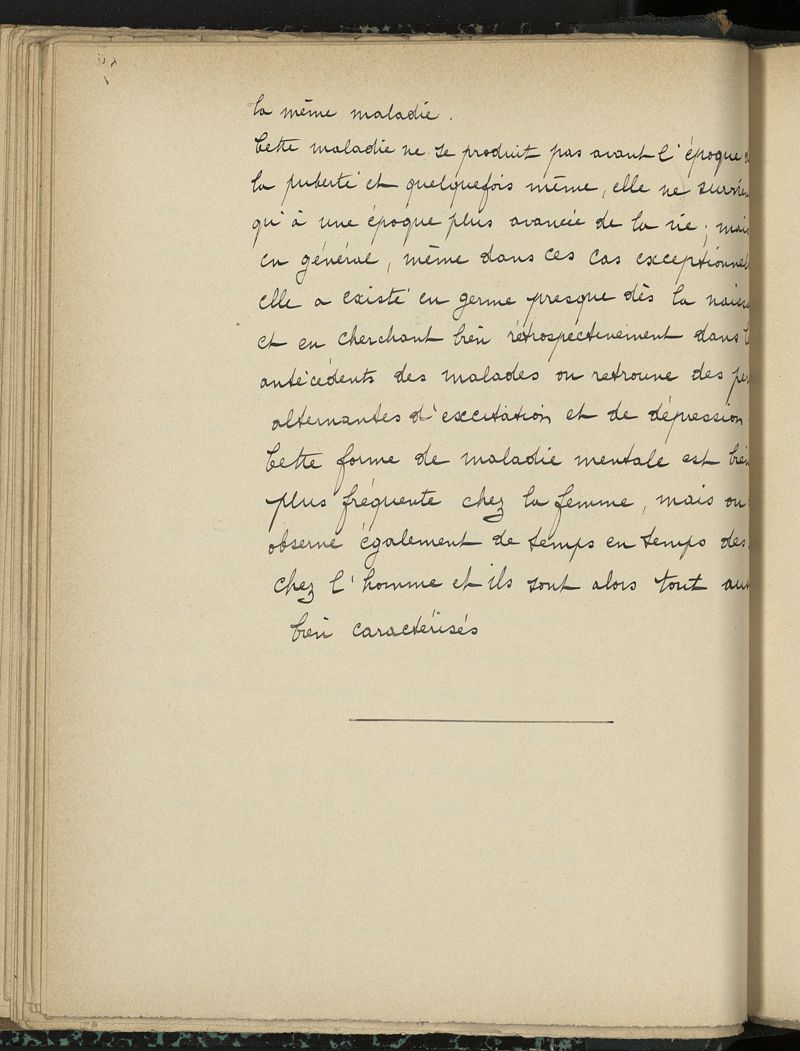 la même maladie.
Cette maladie ne se produit pas avant l'époque
la puberté et quelquefois même, elle ne survie
qu'à une époque plus avancée de la vie ; mais
en général, même dans ces cas exceptionnel
elle a existé en germe presque dès la
et en cherchant bien rétrospectivement dans
antécédents des malades on retrouve des
alternantes d'excitation et de dépression
Cette forme de maladie mentale est bien
plus fréquente chez la femme, mais on
observe également de temps en temps des
chez l'homme et ils sont alors tout
bien caractérisés